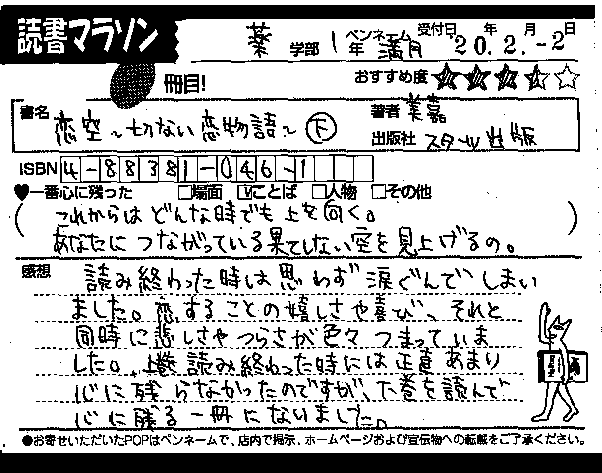 読書マラソン
薬 学部 1年 ペンネーム 満月 受付日 20.年2.月-2日
冊目! おすすめ度
書名 恋空~切ない恋物語~下 著者 美嘉
出版社 スターツ出版
ISBN 4-88381-046-1
♥一番心に残った □場面 ☑ことば □人物 □その他
(これからはどんな時でも上を向く。
あなたにつながっている果てしない空を見上げるの。)
感想 読み終わった時は思わず涙ぐんでしまい
ました。恋することの嬉しさや喜び、それと
同時に悲しさやつらさが色々つまっていま
した。上巻読み終わった時には正直あまり
心に残らなかったのですが、下巻を読んで
心に残る一冊になりました。
●お寄せいただいたPOPはペンネームで、店内で掲示、ホームページおよび宣伝物への転載をご了承ください。